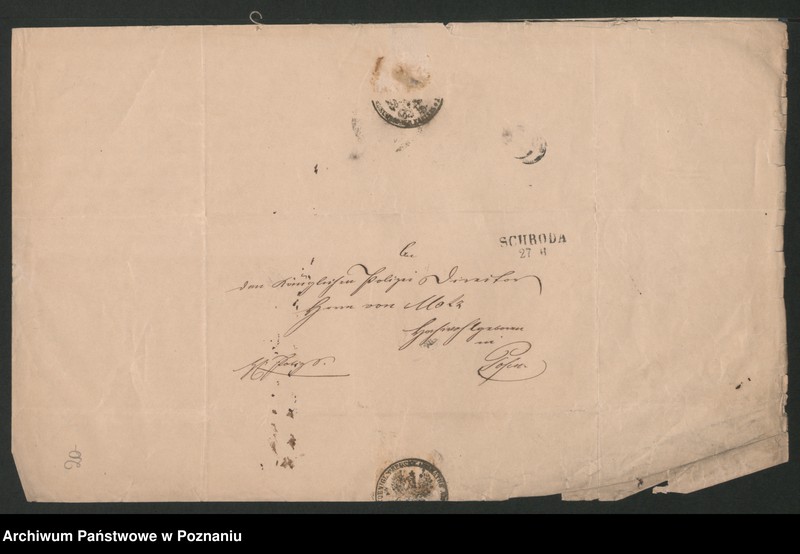 SCHRODA
27 11
An
den Königlichen Polizei Director
Herrn von Motz
Hochwohlgeboren
in
Posen.
20
Archiwum Państwowe w Poznaniu